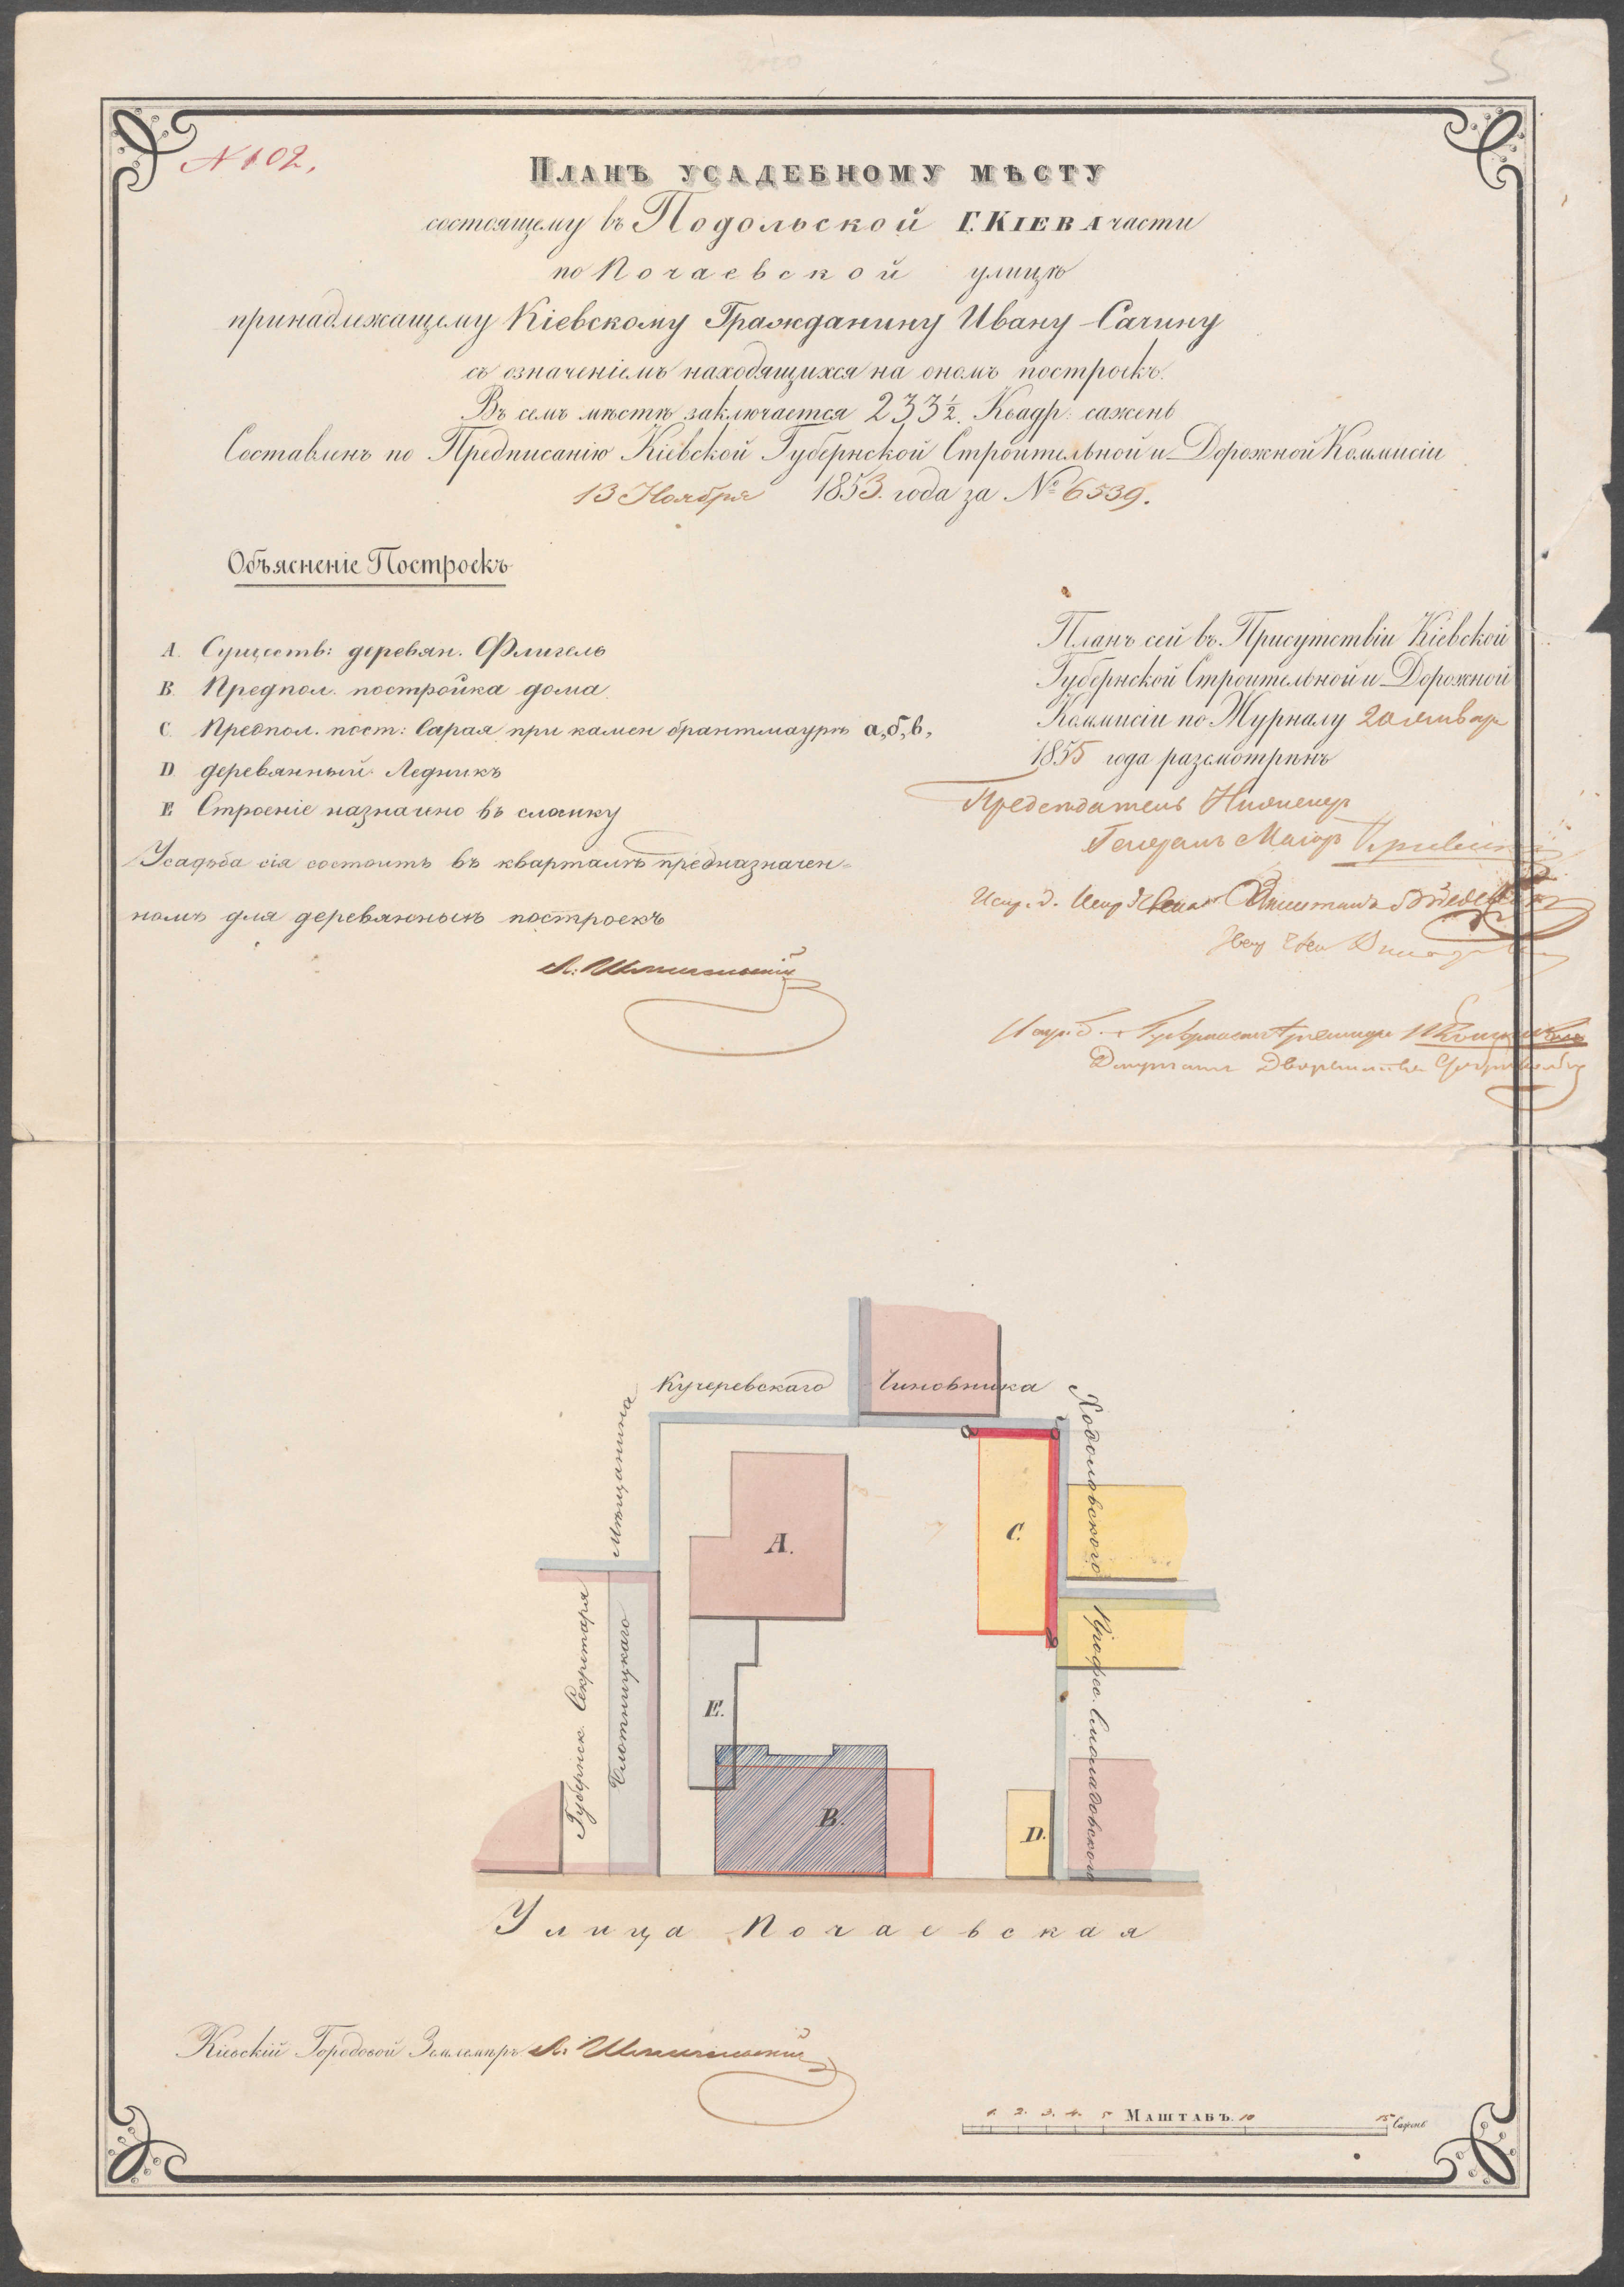 5
N 102.
Планъ усадебному мѣсту
состоящему въ Подольской Г. КІЕВА части
по Почаевской улицѣ
принадлежащему Кіевскому Гражданину Ивану Сачину
съ означеніемъ находящихся на ономъ построекъ.
Въ семъ мѣстѣ заключается 233½. Квадр: сажень
Составленъ по Предписанію Кіевской Губернской Строительной и Дорожной Коммисіи
13 Ноября 1853. года за № 6539.
Объясненіе Построекъ
А. Существ: деревян. Флигель
В. Предпол. постройка дома
С. Предпол. пост: Сарая при камен брантмаурѣ а, б, в,
D деревянный Ледникъ
Е Строеніе назначено въ сломку
Усадьба сія состоитъ въ кварталѣ предназначен-
номъ для деревянныхъ построекъ
Планъ сей въ Присутствіи Кіевской
Губернской Строительной и Дорожной
Коммисіи по Журналу 20 январ
1855 года разсмотрѣнъ
Предсѣдатель Инженер
Генералъ Маіоръ
Кучеревскаго
Чиновника
Мѣщанина
Ходоловского
А.
С.
Губернск. Секретаря
Плотницкаго
Профес.
Е.
В.
D.
Улица Почаевская
Кіевскій Городовой Землемѣръ
1. 2. 3. 4. 5 Маштабъ. 10 15 Сажень